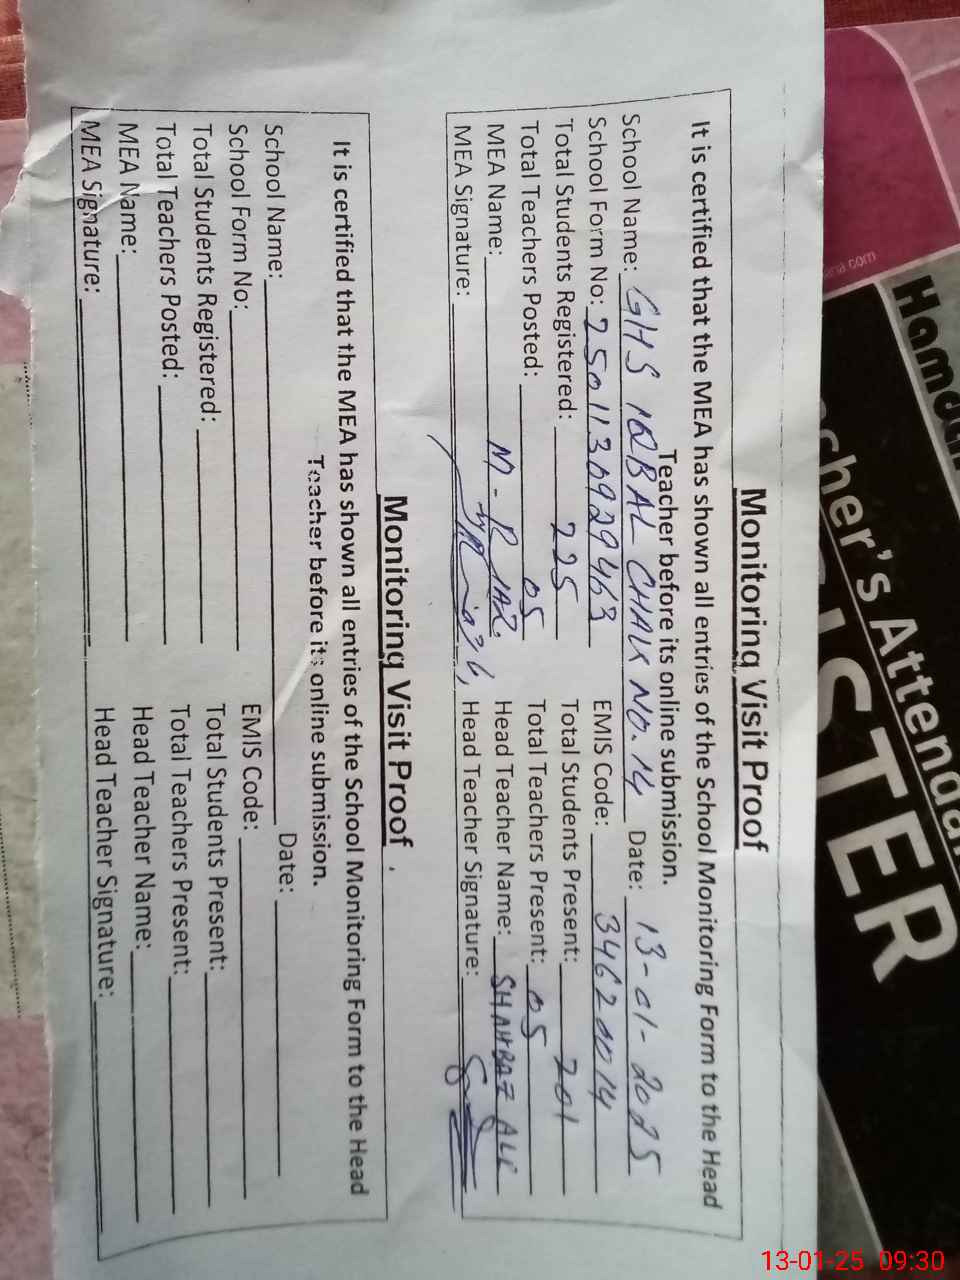 Monitoring Visit Proof
It is certified that the MEA has shown all entries of the School Monitoring Form to the Head
Teacher before its online submission.
School Name: GHS IQBAL CHAK NO. 14 Date: 13-01-2025
School Form No: 2501130929463 EMIS Code: 34620014
Total Students Registered: 225 Total Students Present: 201
Total Teachers Posted: 05 Total Teachers Present: 05
MEA Name: M. RIAZ Head Teacher Name: SHAHBAZ ALI
MEA Signature: Head Teacher Signature:
Monitoring Visit Proof
It is certified that the MEA has shown all entries of the School Monitoring Form to the Head
Teacher before its online submission.
School Name: Date:
School Form No: EMIS Code:
Total Students Registered: Total Students Present:
Total Teachers Posted: Total Teachers Present:
MEA Name: Head Teacher Name:
MEA Signature: Head Teacher Signature:
13-01-25 09:30